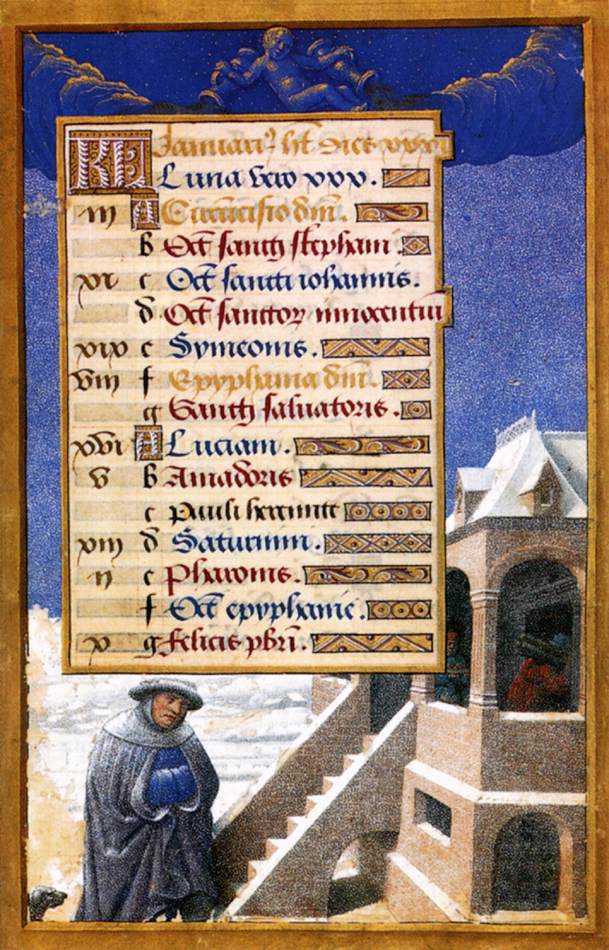 KL Januarius ht dies xxxi
Luna vero xxx.
iii A Circuncisio dm.
b Oct sancti stephani.
xi c Oct sancti iohannis.
d Oct sanctor innocentiu
xix e Symeonis.
viii f Epyphania dm.
g Sancti salvatoris.
xvi A Luciani.
v b Amadoris
c pauli heremite
xiii d Saturnini.
ii e Pharonis.
f Oct epyphanie.
x g felicis pbri.